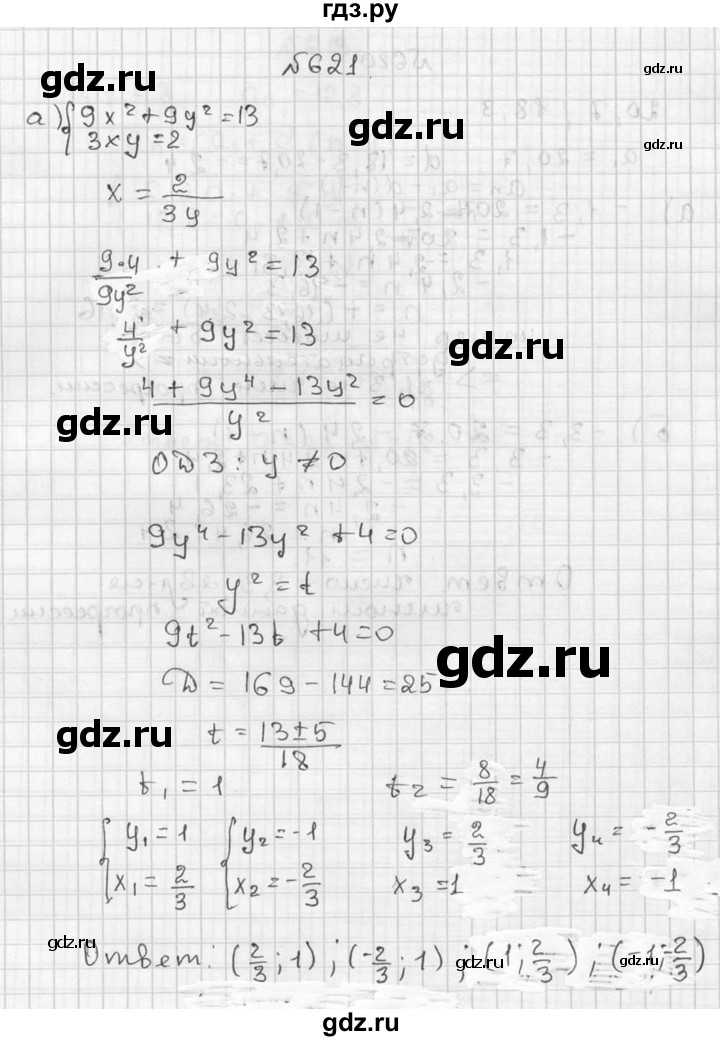 гдз.ру
№621.
gdz.ru
gdz.ru
а) { 9x² + 9y² = 13
3xy = 2
gdz.ru
x = 2/3y
gdz.ru
9·4/9y² + 9y² = 13
4/y² + 9y² = 13
gdz.ru
4 + 9y⁴ - 13y²/y² = 0
gdz.ru
ОДЗ: y ≠ 0
9y⁴ - 13y² + 4 = 0
y² = t
9t² - 13t + 4 = 0
gdz.ru
D = 169 - 144 = 25
gdz.ru
t = 13±5/18
t₁ = 1 t₂ = 8/18 = 4/9
{ y₁ = 1 { y₂ = -1 y₃ = 2/3 y₄ = -2/3
x₁ = 2/3 x₂ = -2/3 x₃ = 1 x₄ = -1
gdz.ru
Ответ: (2/3; 1); (-2/3; 1); (1; 2/3); (-1; -2/3)
gdz.ru
gdz.ru
gdz.ru
gdz.ru